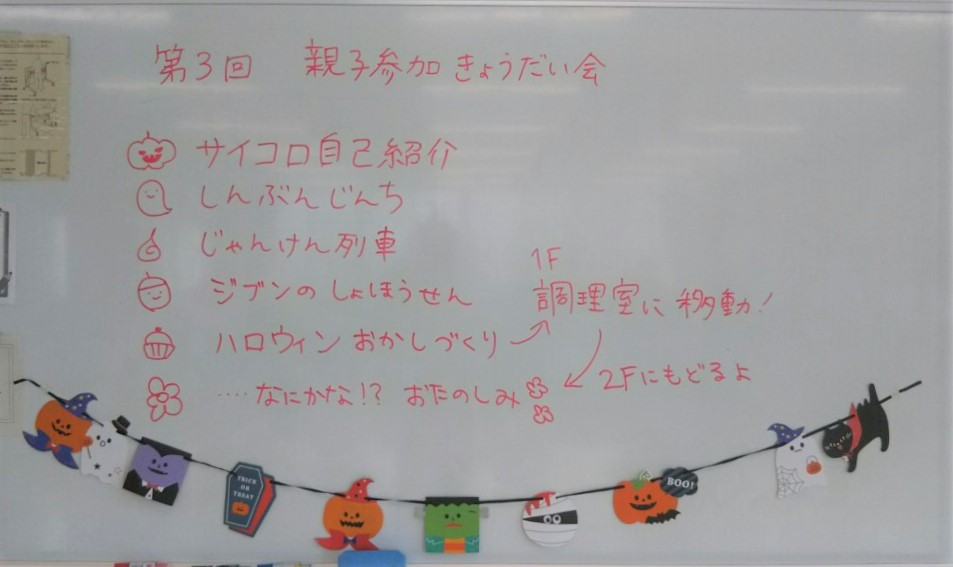 第3回 親子参加 きょうだい会
サイコロ自己紹介
しんぶんじんち
じゃんけん列車
ジブンのしょほうせん
ハロウィンおかしづくり
1F
調理室に移動!
2Fにもどるよ
‥‥なにかな!? おたのしみ
TRICK
OR
TREAT
BOO!